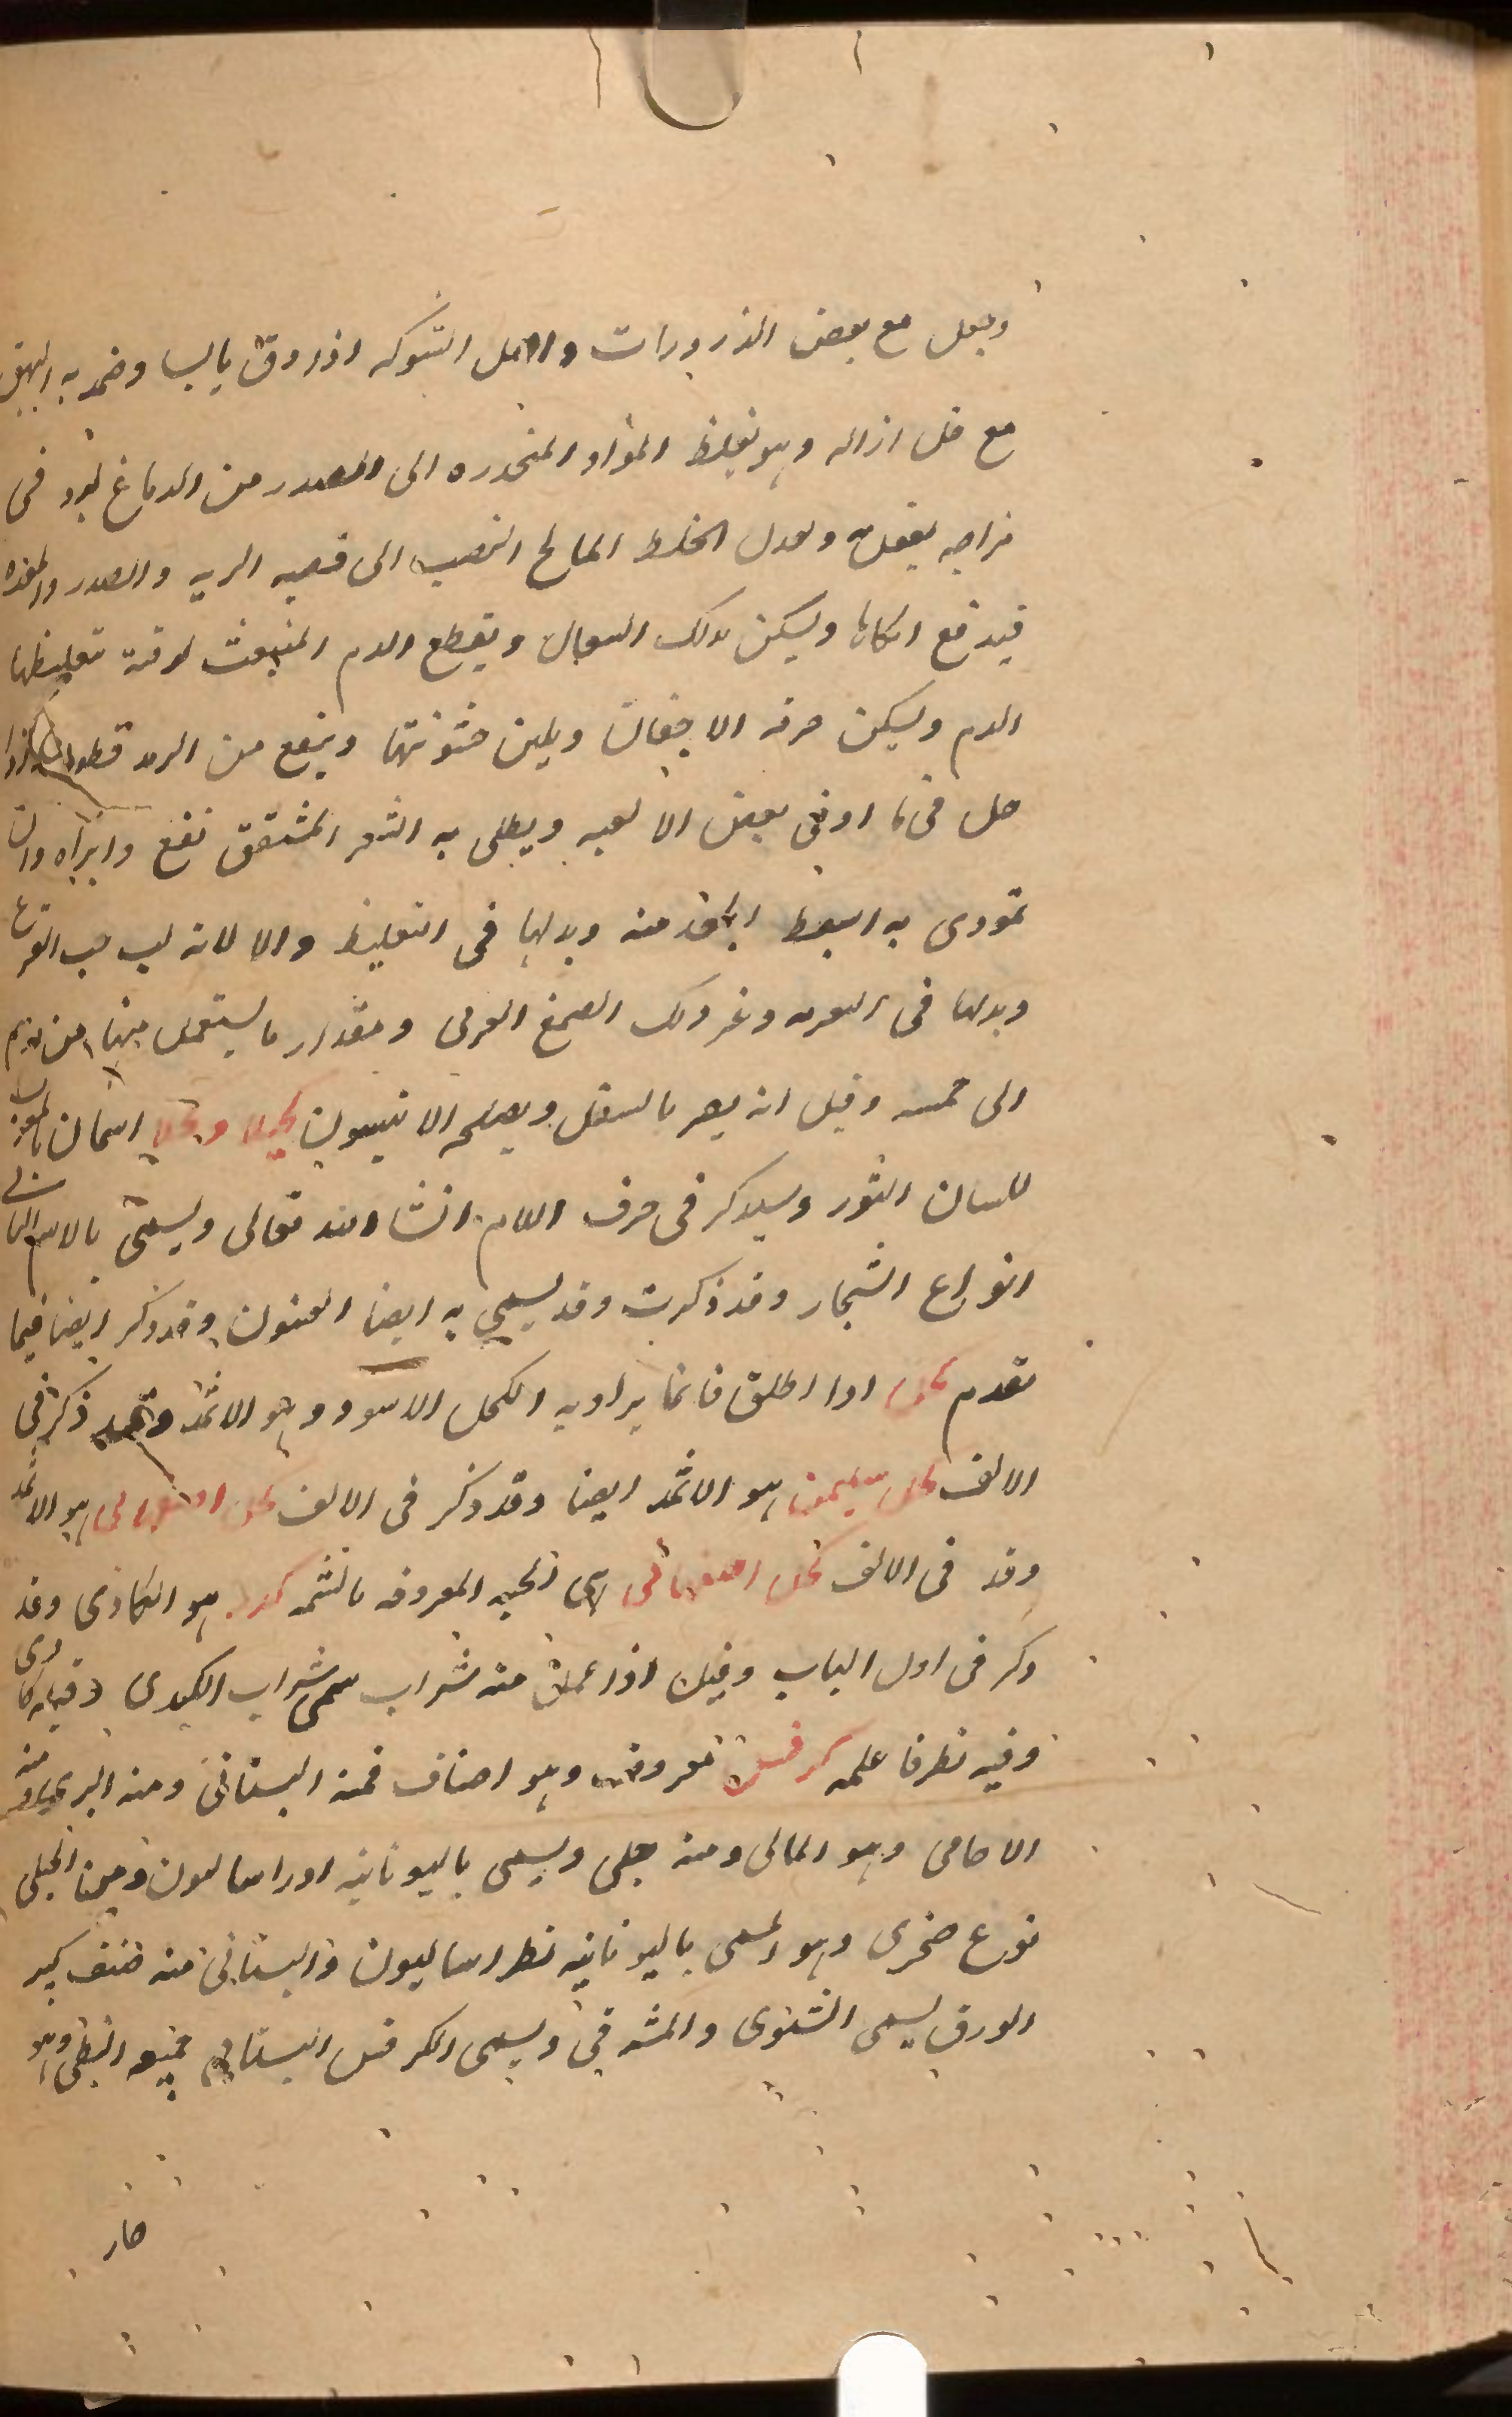 وجعل مع بعض الذرورات واصل الشوكه اذا دق يابسا وضمد به البهق
مع خل ازاله وهو يغلظ المواد المنحدره الى الصدر من الدماغ لبرد فى
مزاجه يفعله ويعدل الخلط المالح المنصب الى قصبه الريه والصدر والمعده
فيدفع نكايتها ويسكن بذلك السعال ويقطع الدم المنبعث لرقته تغليظها
الدم ويسكن حرقه الاجفان ويلين خشونتها وينفع من الرمد قطورا اذا
حل فى ما او فى بعض الالعبه ويطلى به الشعر المشقق نفع وابراه وان
تمودى به انبسط الجعد منه وبدلها فى التغليظ والالانه لب حب القرع
وبدلها فى التعريه وغير ذلك الصمغ العربى ومقدار ما يستعمل منها من درهم
الى خمسه وقيل انه يضر بالسفل ويصلحه الانيسون كحيلا وكحلا اسمان
للسان الثور وسيذكر فى حرف اللام انشا الله تعالى ويسمى بالاسم الثانى
انواع الشجار وقد ذكرت وقد يسمى به ايضا العينون وقد ذكر ايضا فيما
تقدم كحل اذا اطلق فانما يراد به الكحل الاسود وهو الاثمد وقد ذكر فى
الالف كحل سليمن هو الاثمد ايضا وقد ذكر فى الالف كحل هو الاثمد
وقد فى الالف كحل اصفهانى هى الحبه المعروفه بالتشمه كدر هو الكاذى وقد
ذكر فى اول الباب وقيل اذا عمل منه شراب سمى شراب الكدرى وقيل كادى
وفيه نظر فاعلمه كرفس معروف وهو اصناف فمنه البستانى ومنه البرى ومنه
الاجامى وهو المائى ومنه جبلى ويسمى باليونانيه اوراساليون ومن الجبلى
نوع صخرى وهو المسمى باليونانيه نطراساليون والبستانى منه صنف كبير
الورق يسمى الشتوى والمشرقى ويسمى الكرفس البستانى جميعه النبطى وهو
حار